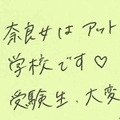 奈良女はアット
学校です♡
受験生、大変